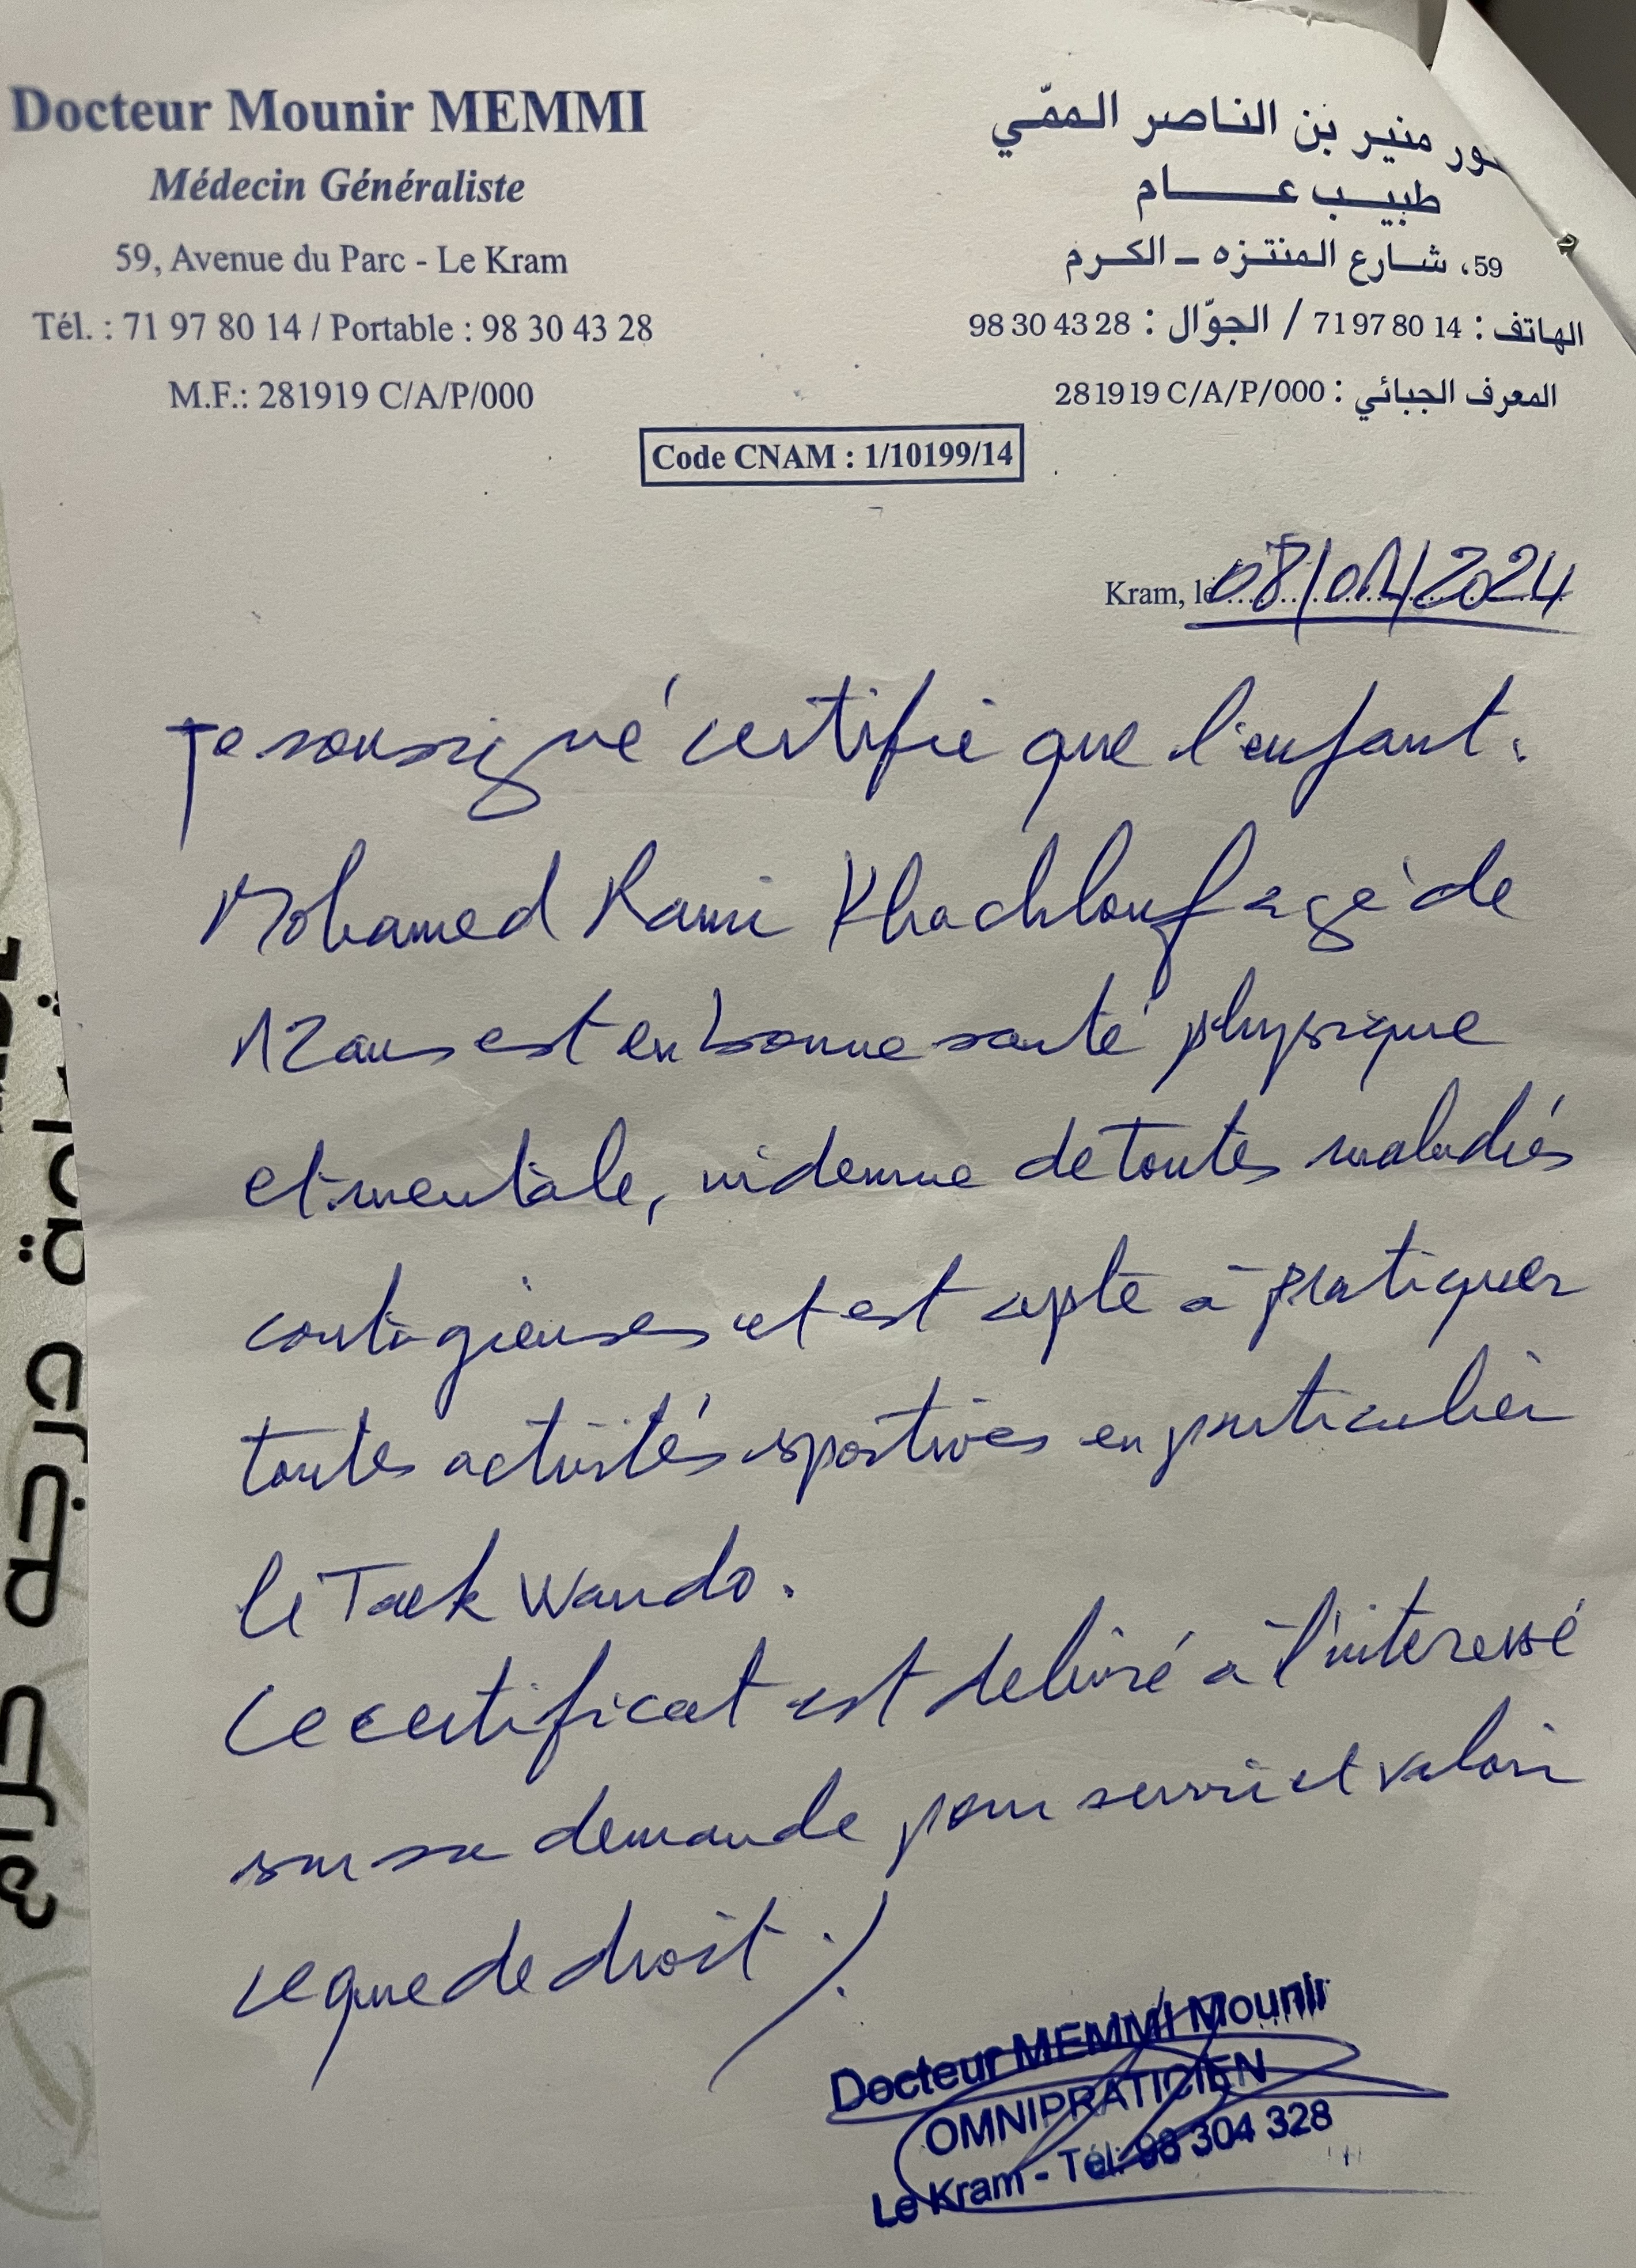 Docteur Mounir MEMMI
Médecin Généraliste
59, Avenue du Parc - Le Kram
Tél. : 71 97 80 14 / Portable : 98 30 43 28
M.F.: 281919 C/A/P/000
منير بن الناصر الممّي
طبيب عام
59، شارع المنتزه - الكرم
الهاتف : 71 97 80 14 / الجوّال : 98 30 43 28
المعرف الجبائي : 281919 C/A/P/000
Code CNAM : 1/10199/14
Kram, le 08/01/2024
Je soussigné certifie que l'enfant
Mohamed Rami Khachlouf agé de
12 ans est en bonne santé physique
et mentale, indemne de toutes maladies
contagieuses et est apte à pratiquer
toutes activités sportives en particulier
le Taek Wando.
Ce certificat est delivré à l'interessé
sur sa demande pour servir et valoir
ce que de droit ./.
Docteur MEMMI Mounir
OMNIPRATICIEN
Le Kram - Tél: 98 304 328